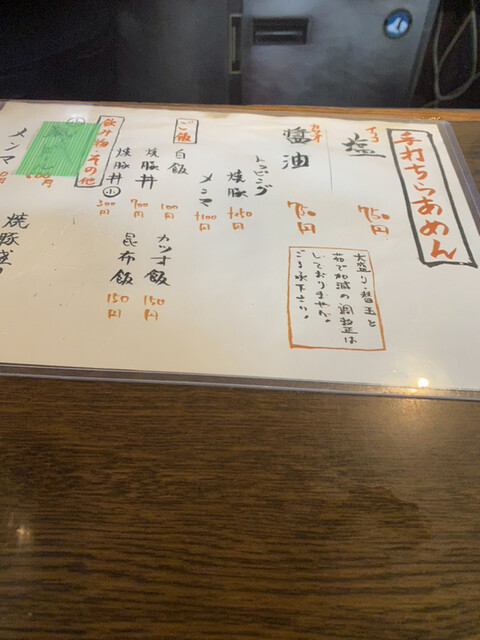 手打ちらあめん
イリコ
塩
750円
カツオ
醤油
750円
大盛り・替玉と
茹で加減の調整は
しておりません。
ご了承下さい。
トッピング
焼豚
+250円
メンマ
+100円
ご飯
白飯
100円
カツオ飯
150円
焼豚丼
700円
昆布飯
150円
焼豚丼小
300円
飲み物・その他
メンマ
焼豚盛り